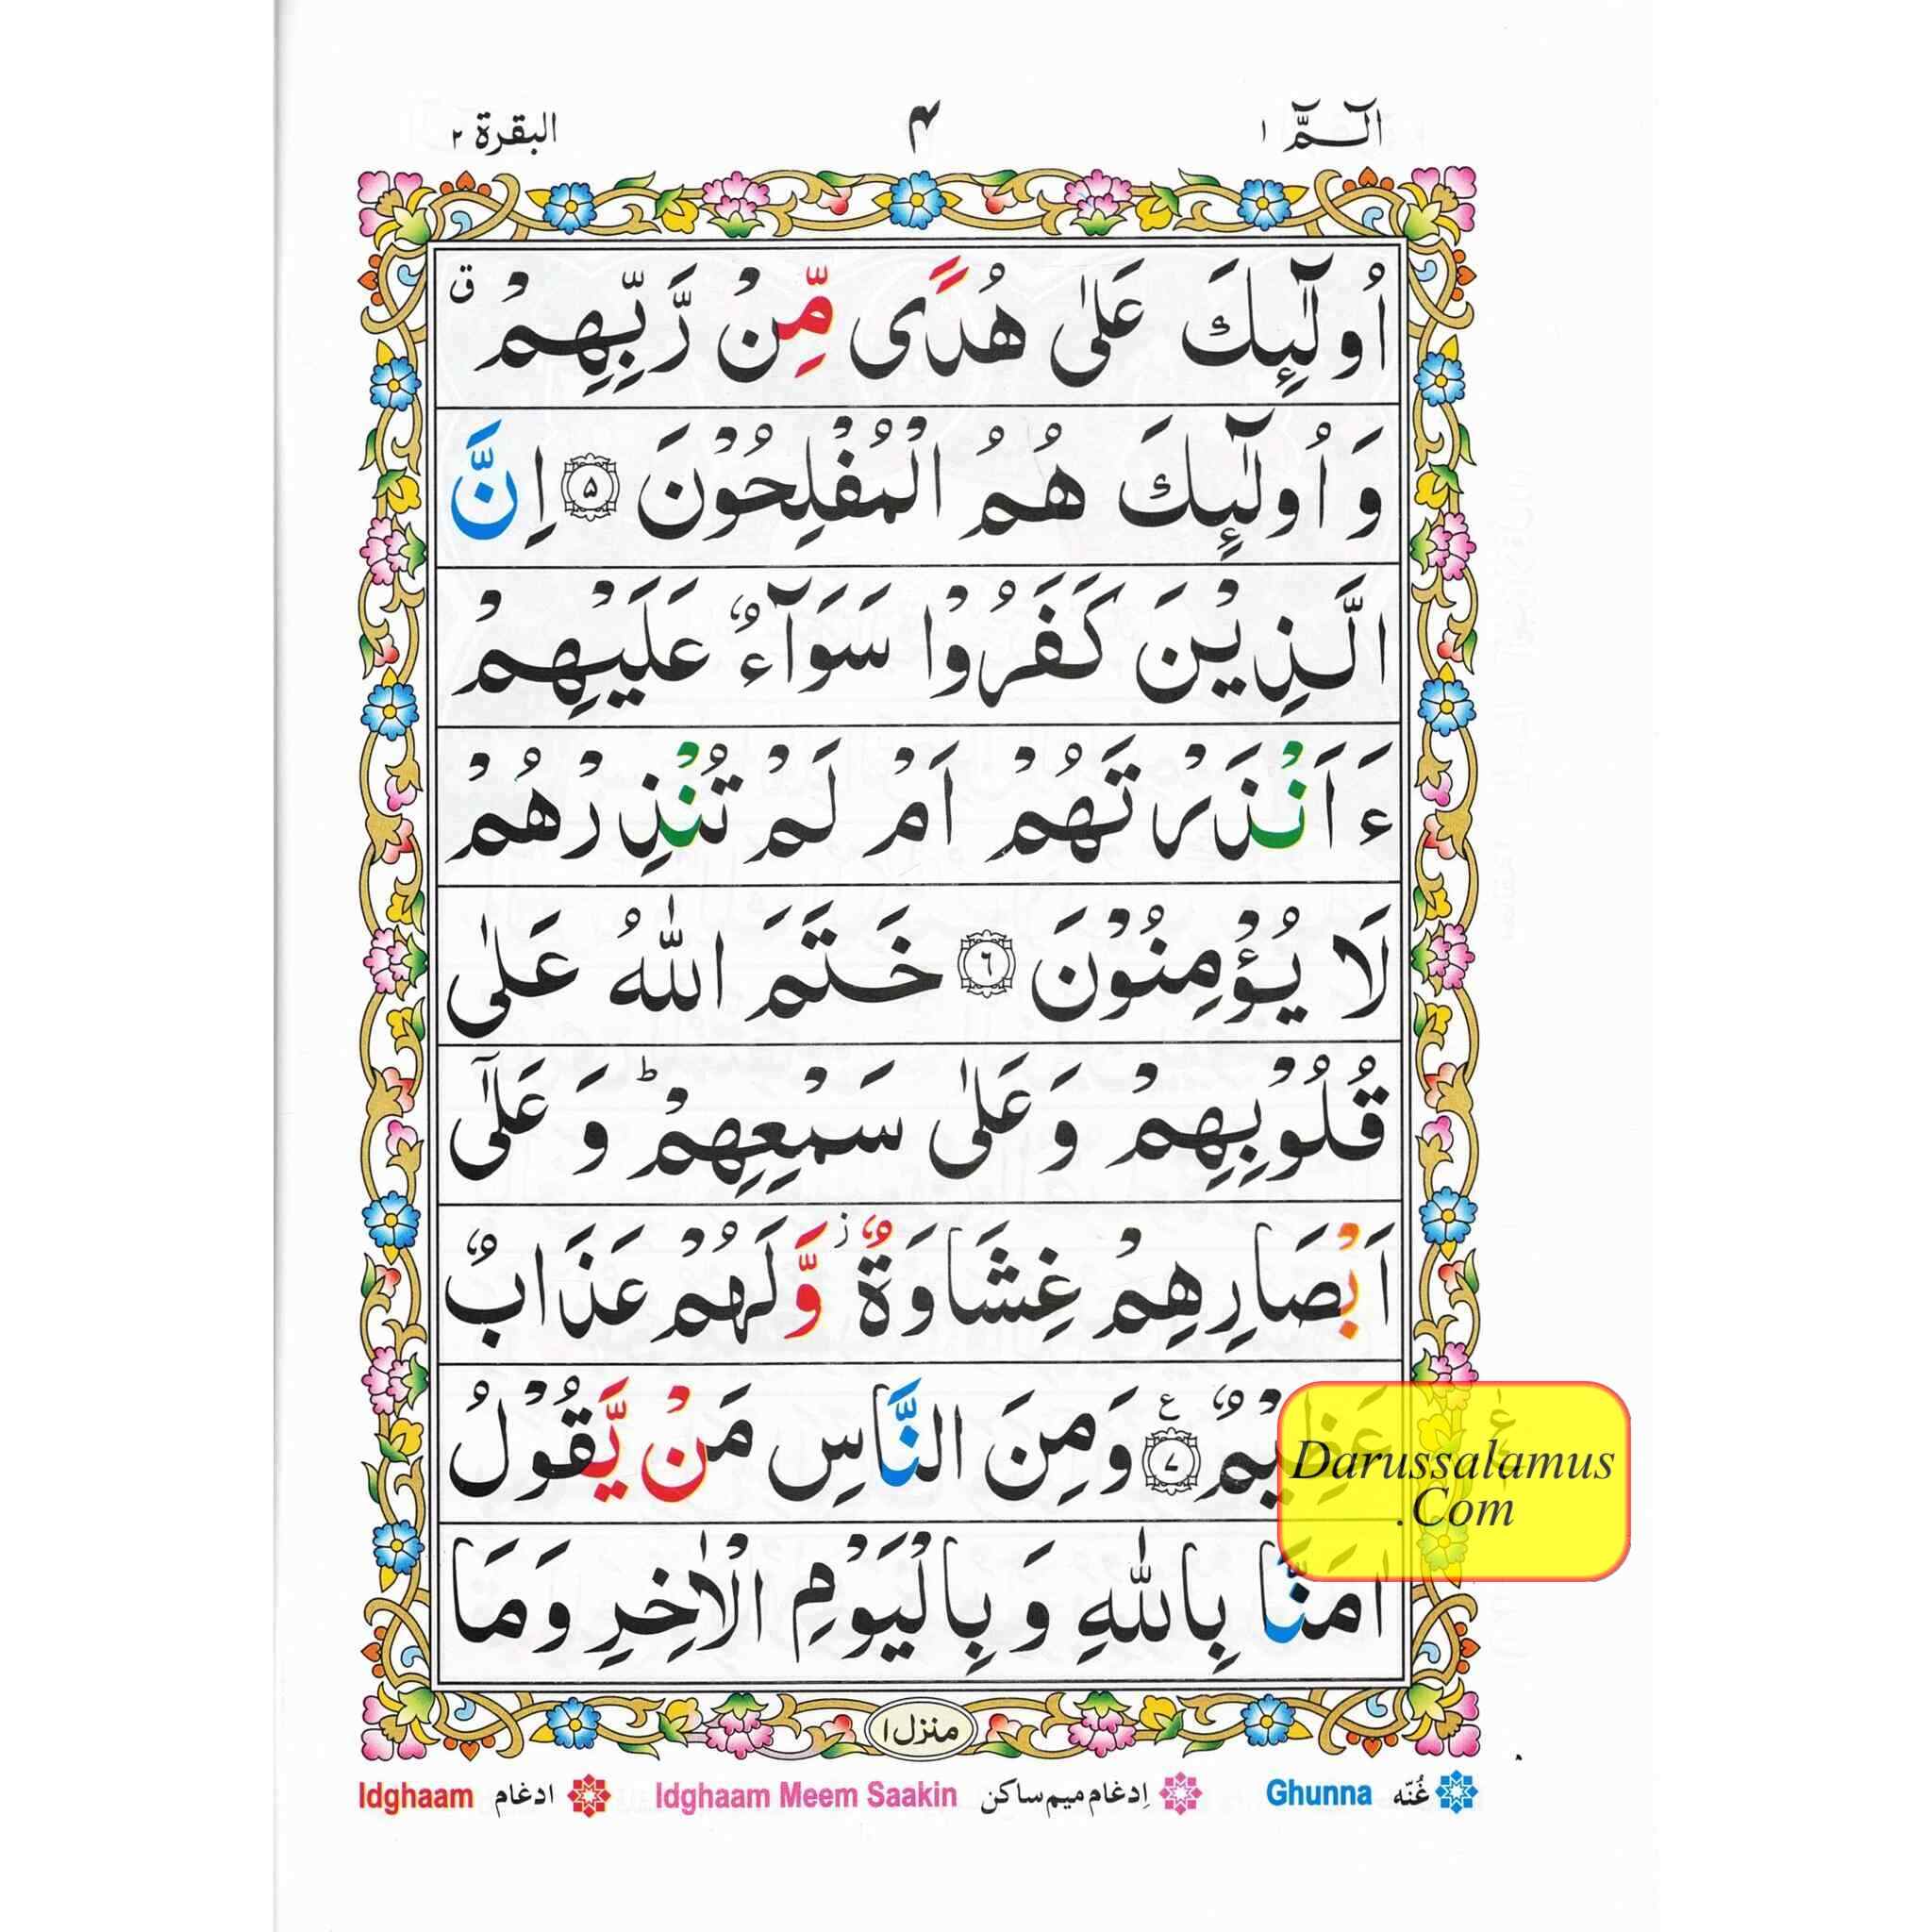 الٓـمّٓ ١ ٤ البقرة ٢
اُولٰٓئِكَ عَلٰى هُدًى مِّنْ رَّبِّهِمْ ۙق
وَ اُولٰٓئِكَ هُمُ الْمُفْلِحُوْنَ ۵ اِنَّ
الَّذِيْنَ كَفَرُوْا سَوَآءٌ عَلَيْهِمْ
ءَ اَنْذَرْتَهُمْ اَمْ لَمْ تُنْذِرْهُمْ
لَا يُؤْمِنُوْنَ ٦ خَتَمَ اللّٰهُ عَلٰى
قُلُوْبِهِمْ وَ عَلٰى سَمْعِهِمْ ؕ وَ عَلٰٓى
اَبْصَارِهِمْ غِشَاوَةٌ ز وَّ لَهُمْ عَذَابٌ
عَظِيْمٌ ٧ ع وَمِنَ النَّاسِ مَنْ يَّقُوْلُ ع
Darussalamus
.Com
اٰمَنَّا بِاللّٰهِ وَ بِالْيَوْمِ الْاٰخِرِ وَمَا
منزل ١
Idghaam ادغام Idghaam Meem Saakin اِدغام ميم ساكن Ghunna غُنّه